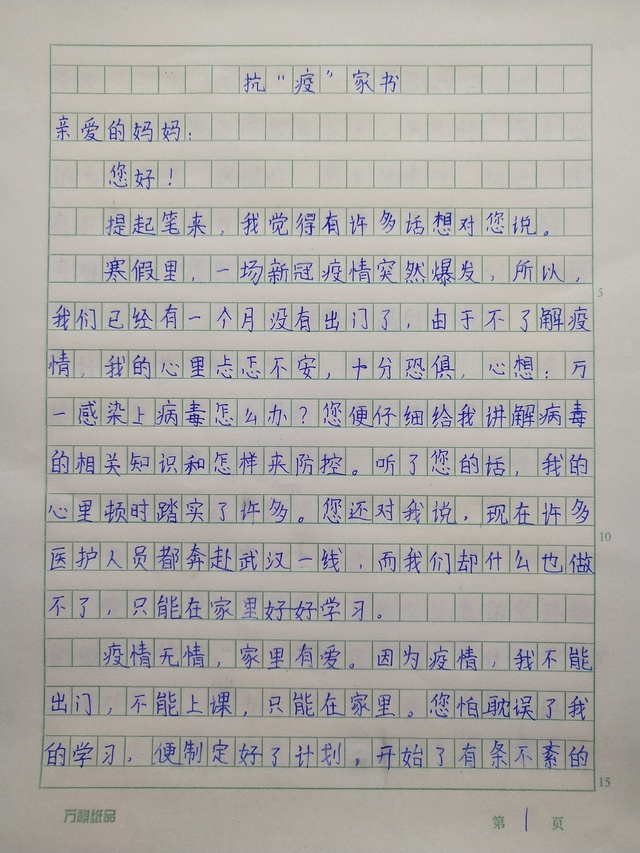 抗“疫”家书
亲爱的妈妈：
您好！
提起笔来，我觉得有许多话想对您说。
寒假里，一场新冠疫情突然爆发，所以，
5
我们已经有一个月没有出门了，由于不了解疫
情，我的心里忐忑不安，十分恐惧，心想：万
一感染上病毒怎么办？您便仔细给我讲解病毒
的相关知识和怎样来防控。听了您的话，我的
心里顿时踏实了许多。您还对我说，现在许多
10
医护人员都奔赴武汉一线，而我们却什么也做
不了，只能在家里好好学习。
疫情无情，家里有爱。因为疫情，我不能
出门，不能上课，只能在家里。您怕耽误了我
的学习，便制定好了计划，开始了有条不紊的
15
万祺纸品
第 1 页